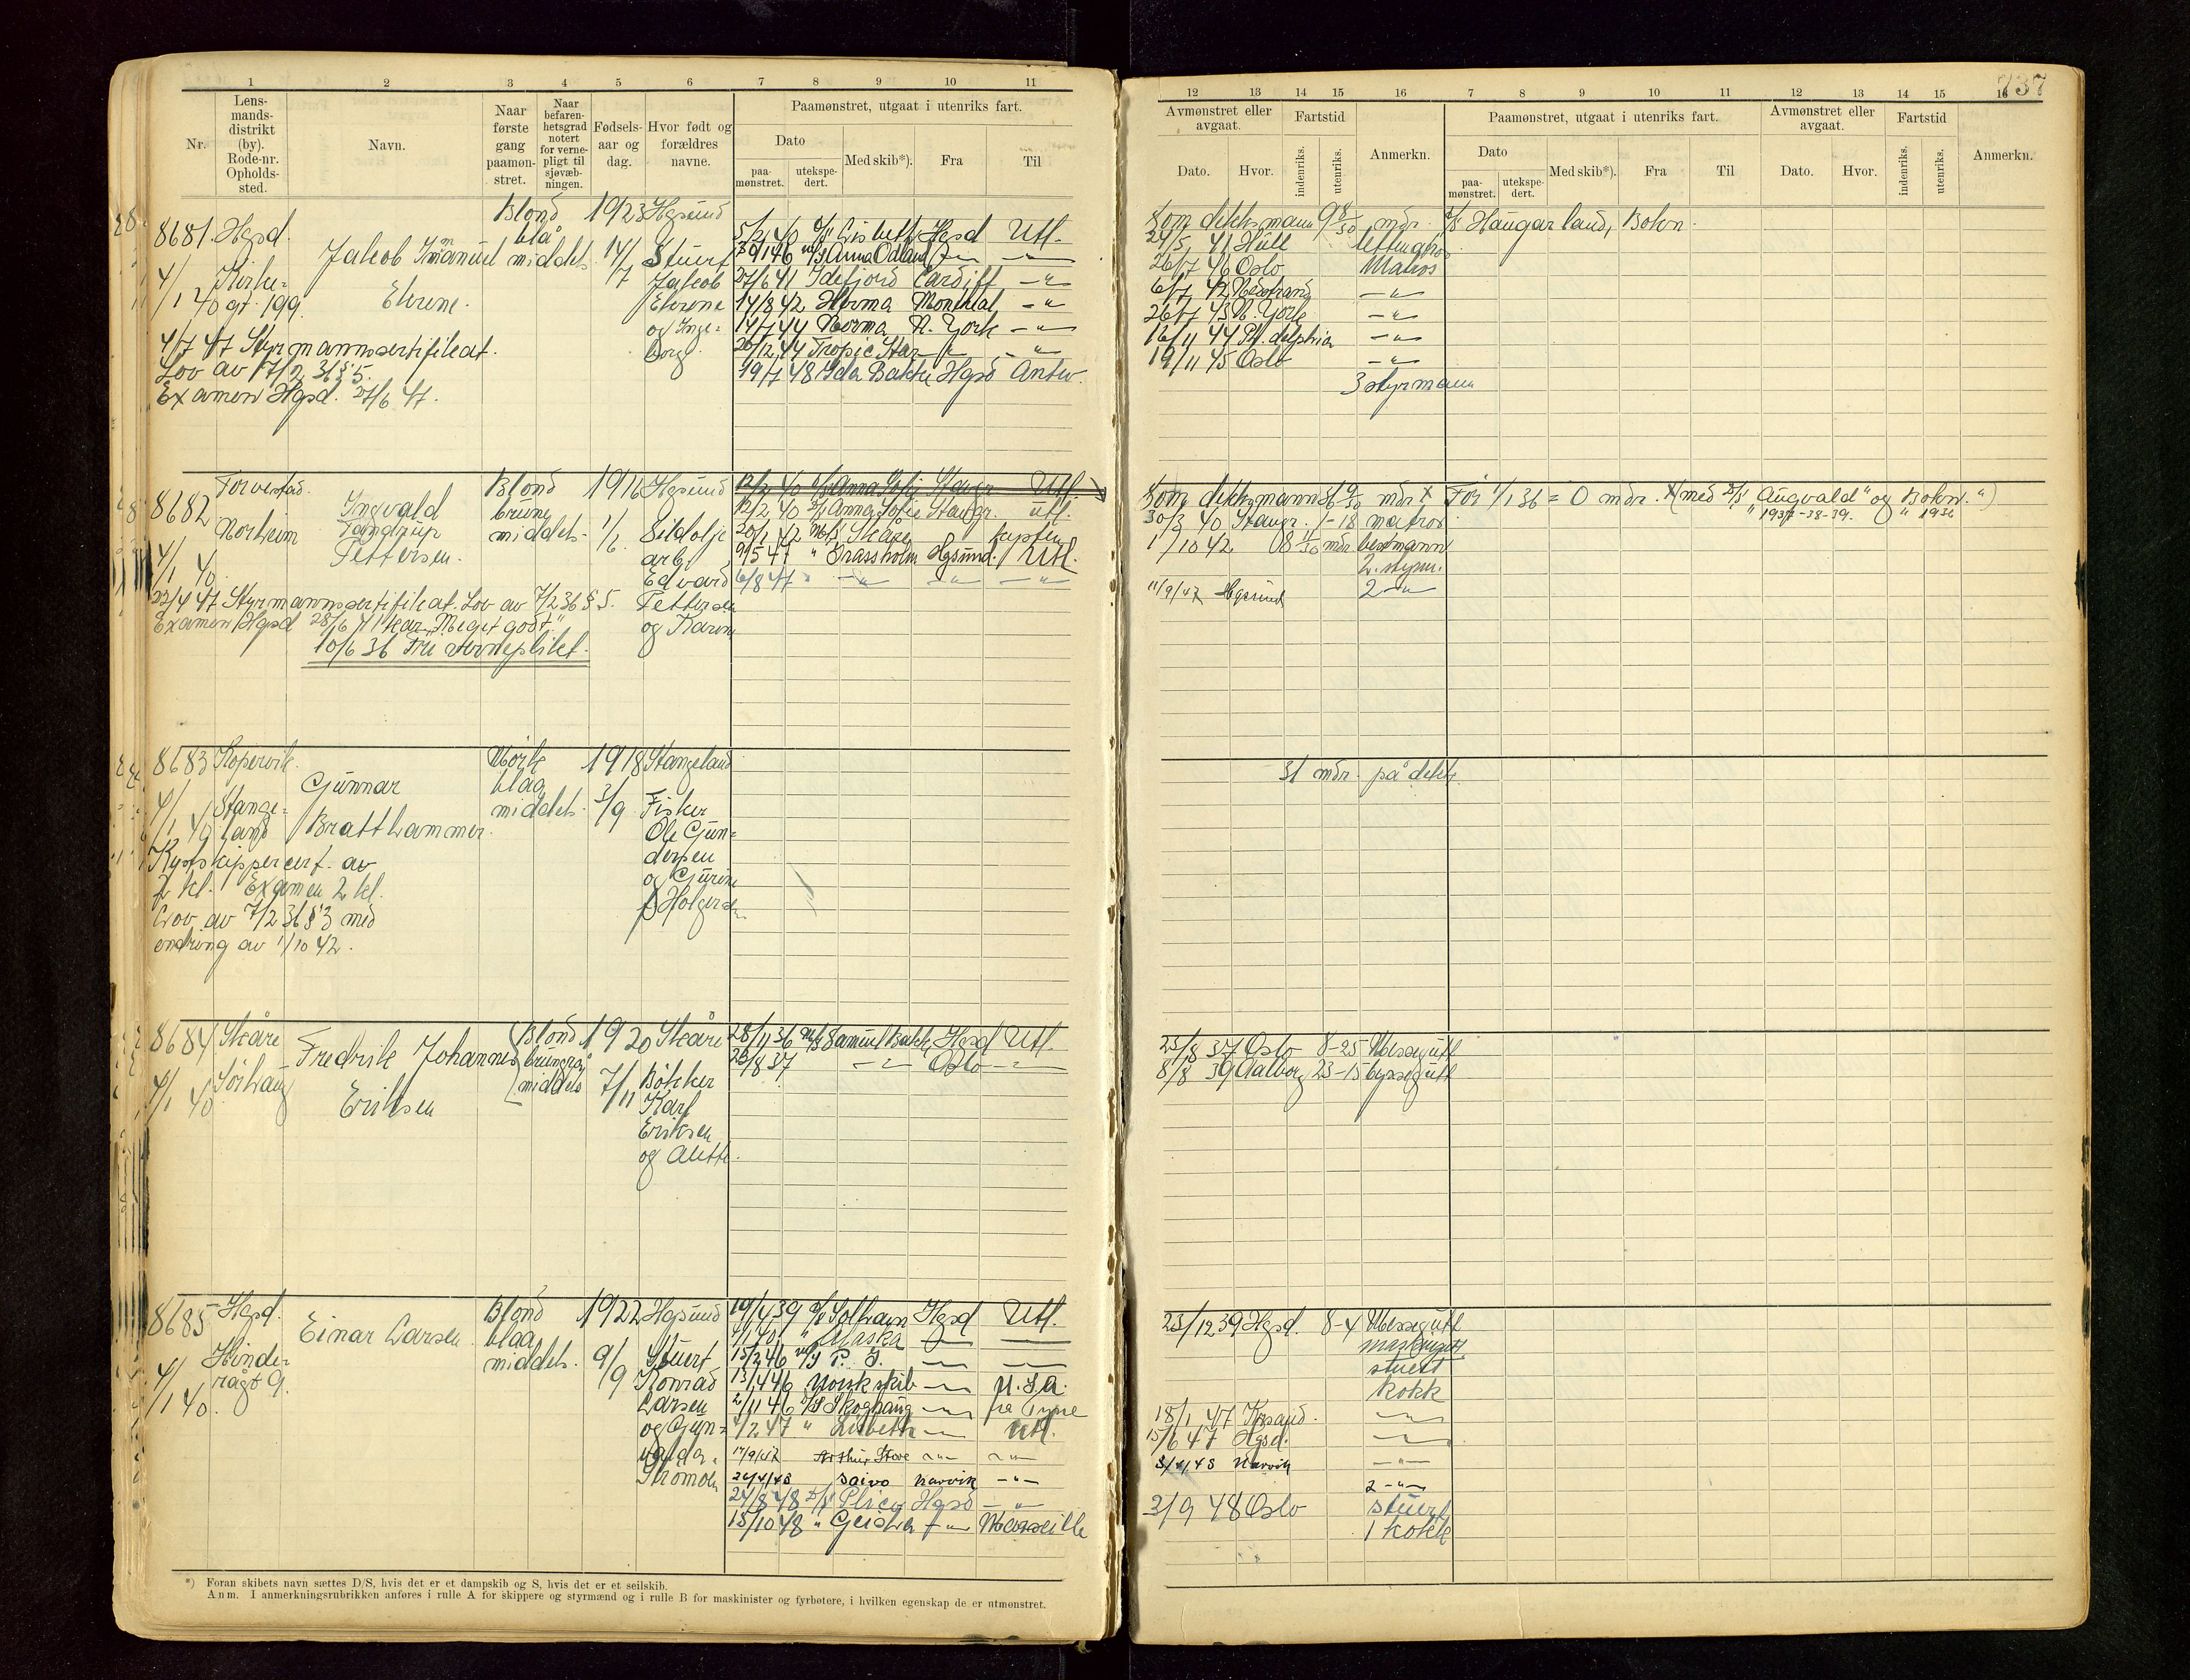 737
1 2 3 4 5 6 7 8 9 10 11
Nr.
Lens-
mands-
distrikt
(by).
Rode-nr.
Opholds-
sted.
Navn.
Naar
første
gang
paamøn-
stret.
Naar
befaren-
hetsgrad
notert
for verne-
pligt til
sjøvæb-
ningen.
Fødsels-
aar og
dag.
Hvor født og
forældres
navne.
Paamønstret, utgaat i utenriks fart.
Dato
paa-
mønstret.
utekspe-
dert.
Med skib*).
Fra
Til
12 13 14 15 16 7 8 9 10 11 12 13 14 15 16
Avmønstret eller
avgaat.
Dato.
Hvor.
Fartstid
indenriks.
utenriks.
Anmerkn.
Paamønstret, utgaat i utenriks fart.
Dato
paa-
mønstret.
utekspe-
dert.
Med skib*).
Fra
Til
Avmønstret eller
avgaat.
Dato.
Hvor.
Fartstid
indenriks.
utenriks.
Anmerkn.
8681 Hgsd.
4/1 40
Kirke-
gt. 199
Jakob Immanuel
Ekrene.
Blond
blå
middels
1923
14/7
Hgsund
Stuert
Jakob
Ekrene
og Inge-
borg
4/7 47 Styrmannssertifikat.
Lov av 17/2 36 § 5.
Examen Hgsd. 27/6 47.
5/2 40 D/S Lisbeth Hgsd Utl.
Anna Odland
27/6 41 Idefjord Cardiff -"-
14/8 42 Herma Montreal -"-
14/7 44 Norma N. York -"-
20/12 44 Tropic Star -"- -"-
19/7 48 Ida Bakke Hgsd Antw.
Som dekksmann 9 mdr. D/S Haugarland, Bokn.
24/5 41 Hull lettmatros
26/7 46 Oslo Matros
6/7 42 -"-
26/7 43 N. York -"-
16/11 44 -"-
19/11 45 Oslo -"-
3 styrmann
8682
4/1 40
Torvestad.
Norheim
Ingvald
Tandrup
Pettersen.
Blond
brune
middels
1916
1/6
Hgsund
Sildolje
arb.
Edvard
Pettersen
og Karen
22/4 47 Styrmannssertifikat. Lov av 7/2 36 § 5.
Examen Hgsd 28/6 41 kar. "Meget godt"
10/6 36 Fri verneplikt.
12/2 40 D/S Anna Sofie Stavgr. Utl.
12/2 40 D/S Anna Sofie Stavgr. utl.
20/1 42 M/S Skåre kysten
9/5 47 " Grassholm Hgsund. Utl.
6/8 47 " -"- -"- -"-
Som dekksmann 36 mdr x Før 1/1 36 = 0 mdr. x (med D/S "Augvald" og "Bokn.")
" 1937-38-39. " 1936
30/3 40 Stavgr. 1-18 matros
1/10 42 8 mdr bestmann
2. styrm.
11/9/47 Hgsund 2 -"-
8683 Kopervik.
4/1 40
Stange-
land
Gunnar
Bratthammer.
Mørk
blaa
middels
1918
3/9
Stangeland
Fisker
Ole Gun-
dersen
og Gurine
f. Holgersen
Kystskippercert. av
2 kl. Examen 2 kl.
Lov av 7/2 36 § 3 med
endring av 1/10 42.
31 mdr. på dekk
8684 Skåre
4/1 40
Sørhaug
Fredrik Johannes
Eriksen
Blond
brungrå
middels
1920
7/11
Skåre
Bøkker
Karl
Eriksen
og Alette.
28/11 36 M/S Samuel Bakke Hgsd Utl.
23/8 37 -"- Oslo -"-
23/8 37 Oslo 8-25 Messegutt
8/8 39 Aalborg 23-15 byssegutt
8685 Hgsd.
4/1 40.
Hinde-
rågt 9.
Einar Larsen.
Blond
blaa
middels.
1922
9/9
Hgsund
Stuert
Konrad
Larsen
og Gun-
valda.
Strømøen
19/4 39 D/S Solhavn Hgsd Utl.
4/1 40 " Alaska
15/2 46 M/S P. J.
13/4 46 Norsk skib -"- U.S.A.
2/11 46 D/S Skoghaug -"- fra Tyne
4/2 47 " Lisbeth -"- Utl.
17/9/47 Arthur Stove -"- -"-
26/4/48 Saivo Narvik -"-
24/8 48 D/S Plico Hgsd -"-
15/10 48 " Geisha -"- Marseille
23/12 39 Hgsd. 8-4 Messegutt
stuert
kokk
18/1 47 Krsand. -"-
15/6 47 Hgsd. -"-
3/4/48 Narvik -"-
2 -"-
2/9 48 Oslo stuert
1 kokk
*) Foran skibets navn sættes D/S, hvis det er et dampskib og S, hvis det er et seilskib.
Anm. I anmerkningsrubrikken anføres i rulle A for skippere og styrmænd og i rulle B for maskinister og fyrbøtere, i hvilken egenskap de er utmønstret.